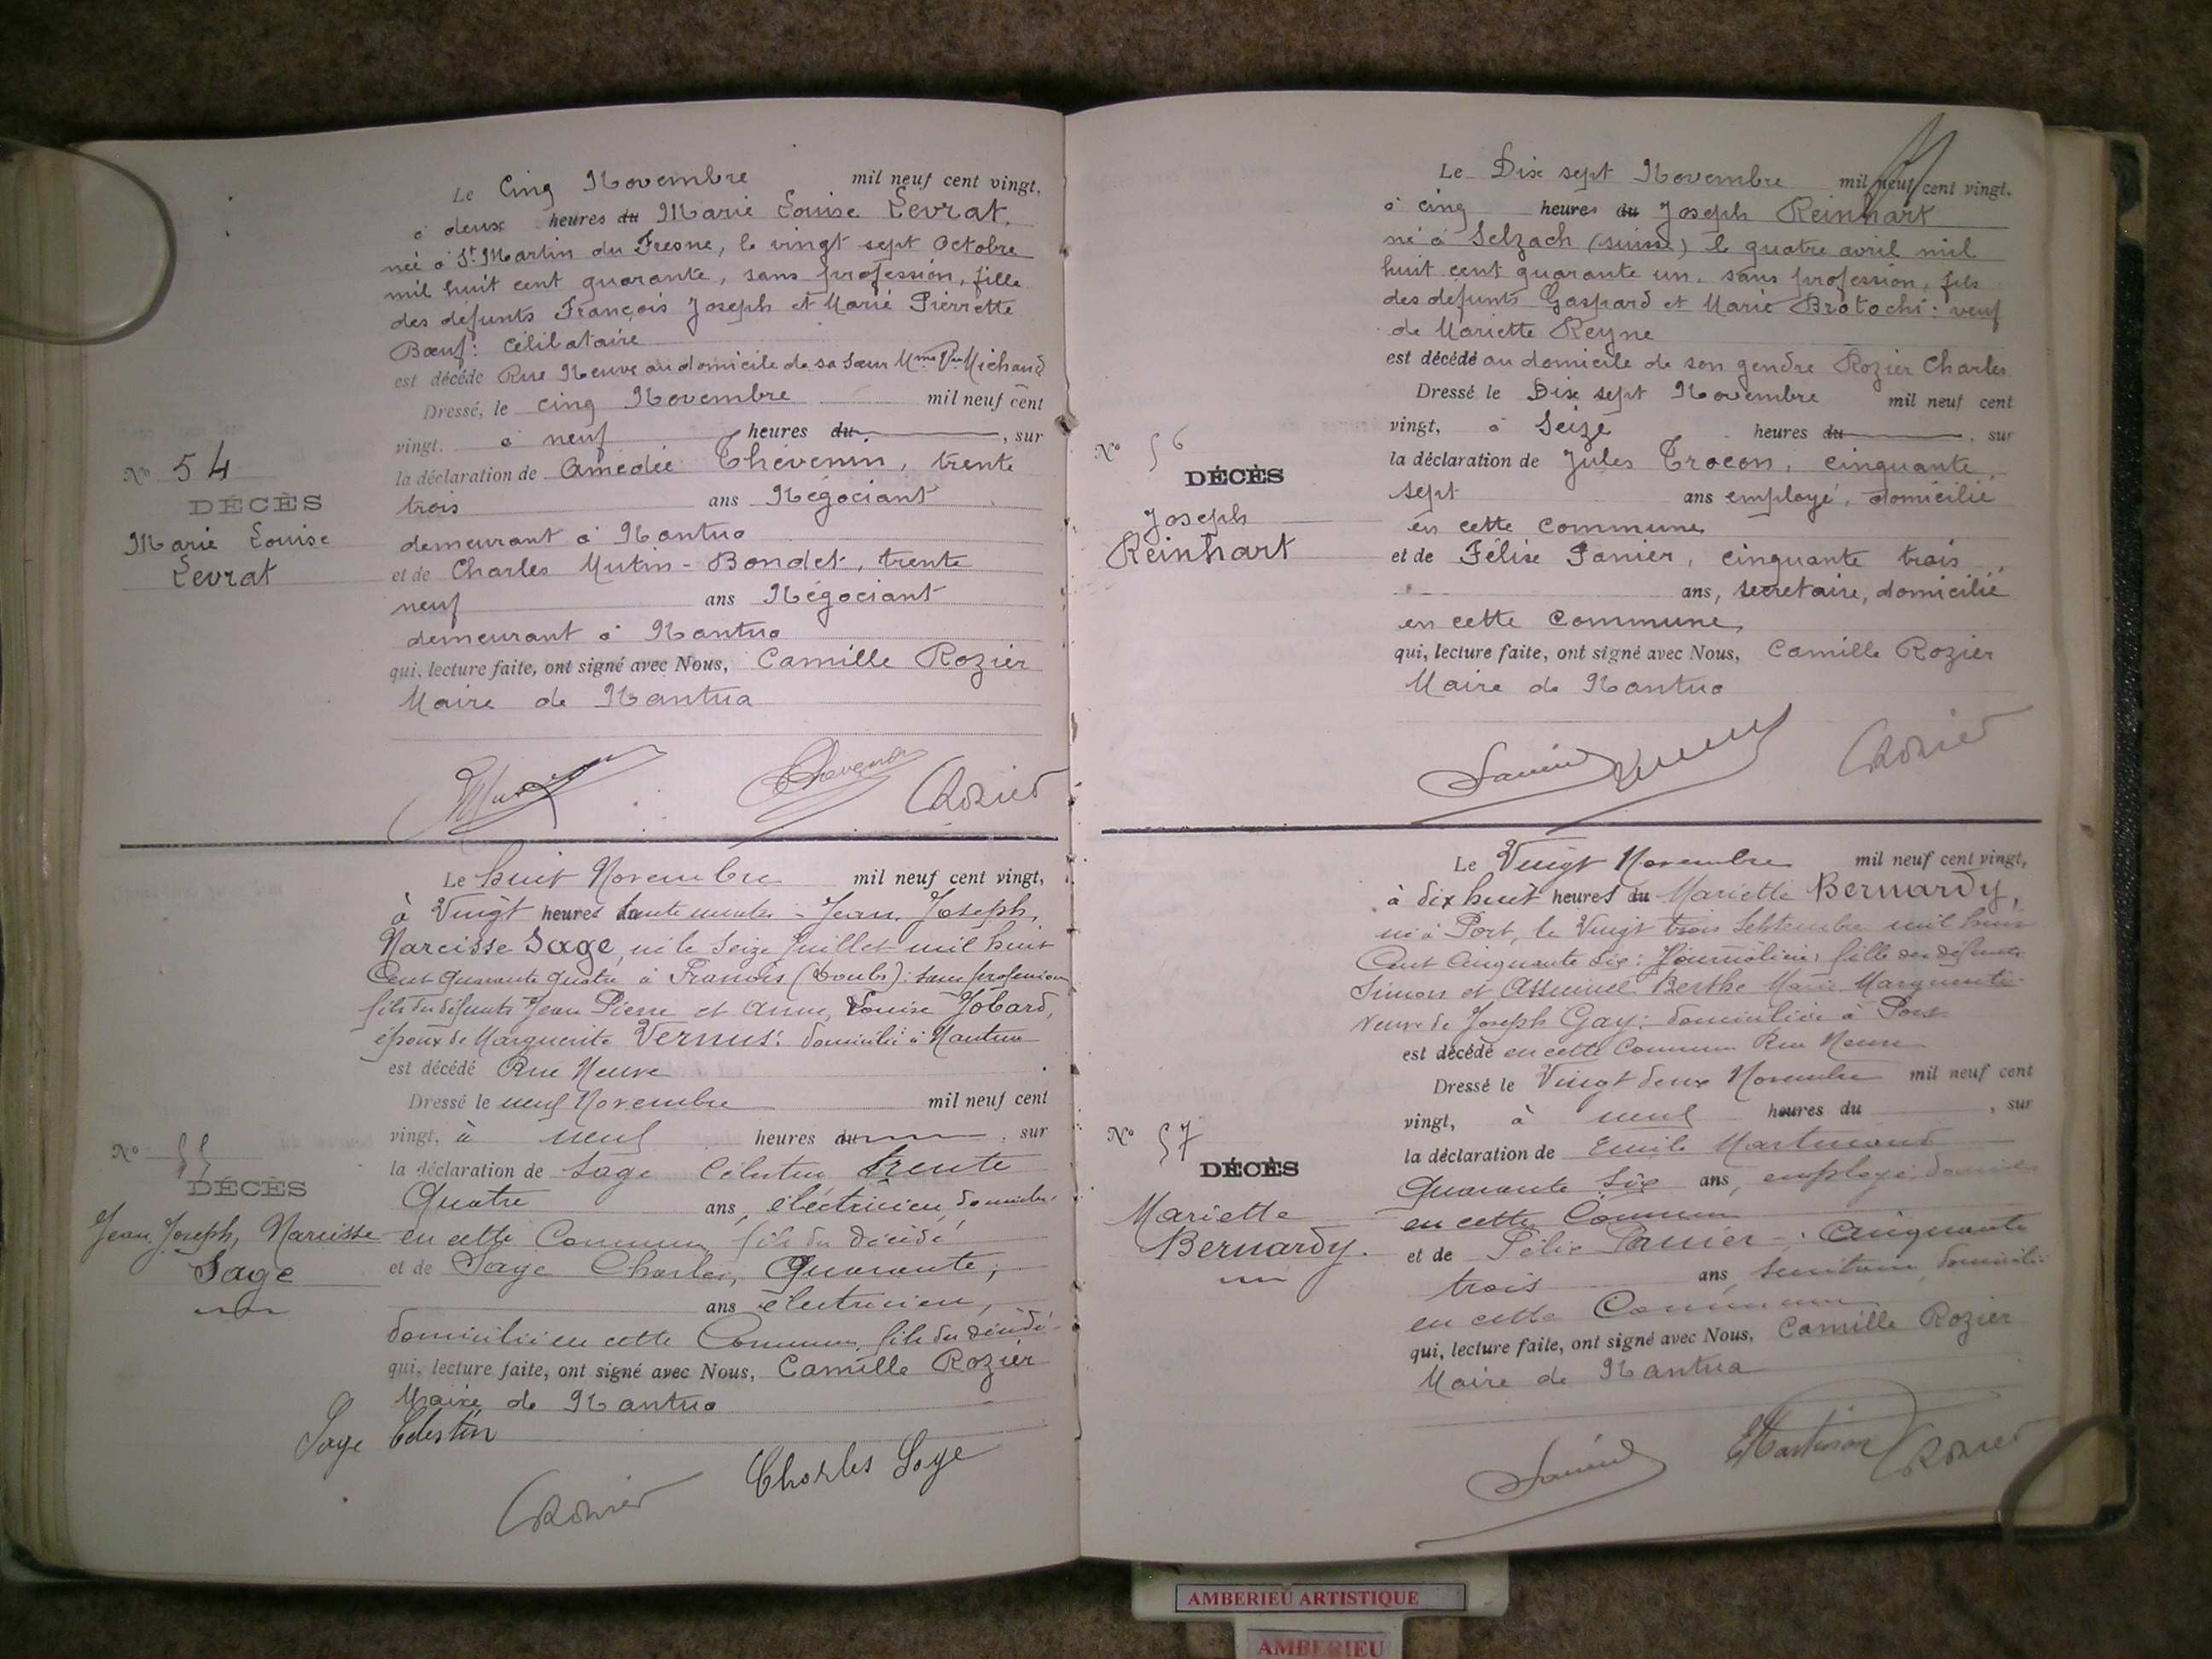 Le Cinq Novembre mil neuf cent vingt,
à deux heures du Marie Louise Levrat,
née à St Martin du Fresne, le vingt sept Octobre
mil huit cent quarante, sans profession, fille
des défunts François Joseph et Marie Pierrette
Bœuf: célibataire
est décédé Rue Neuve au domicile de sa sœur Mme Vve Michaud
Dressé, le cinq Novembre mil neuf cent
vingt, à neuf heures du, sur
la déclaration de Amédée Thévenin, trente
trois ans Négociant
demeurant à Nantua
et de Charles Mutin-Bondet, trente
neuf ans Négociant
demeurant à Nantua
qui, lecture faite, ont signé avec Nous, Camille Rozier
Maire de Nantua
No 54
DÉCÈS
Marie Louise
Levrat
Rozier
Le huit Novembre mil neuf cent vingt,
à Vingt heures trente minutes - Jean, Joseph,
Narcisse Sage, né le seize Juillet mil huit
Cent quarante quatre à Franois (Doubs): sans profession
fils des défunts Jean Pierre et Anne, Louise Jobard,
époux de Marguerite Vernus: domicilié à Nantua
est décédé Rue Neuve
Dressé le neuf Novembre mil neuf cent
vingt, à neuf heures du, sur
la déclaration de Sage Célestin trente
Quatre ans, électricien, domicilié
en cette Commune fils du décédé
et de Sage Charles, Quarante,
ans électricien,
domicilié en cette Commune, fils du décédé
qui, lecture faite, ont signé avec Nous, Camille Rozier
Maire de Nantua
No 55
DÉCÈS
Jean, Joseph, Narcisse
Sage
Sage Célestin
Charles Sage
Rozier
Le Dix sept Novembre mil neuf cent vingt,
à cinq heures du Joseph Reinhart
né à Selzach (suisse) le quatre avril mil
huit cent quarante un, sans profession, fils
des défunts Gaspard et Marie Brotochi: veuf
de Mariette Reyne
est décédé au domicile de son gendre Rozier Charles
Dressé le Dix sept Novembre mil neuf cent
vingt, à Seize heures du, sur
la déclaration de Jules Trocon, cinquante
sept ans employé, domicilié
en cette commune
et de Félix Panier, cinquante trois
ans, secretaire, domicilié
en cette commune,
qui, lecture faite, ont signé avec Nous, Camille Rozier
Maire de Nantua
No 56
DÉCÈS
Joseph
Reinhart
Panier
Rozier
Le Vingt Novembre mil neuf cent vingt,
à dix huit heures du Mariette Bernardy,
née à Port, le Vingt trois Septembre mil huit
Cent Cinquante six: Journalière, fille des défunts
Simon et Berthe Marie Marguerite
Veuve de Joseph Gay: domiciliée à Port
est décédé en cette Commune Rue Neuve
Dressé le Vingt deux Novembre mil neuf cent
vingt, à neuf heures du, sur
la déclaration de Emile
Quarante Six ans, employé, domicilié
en cette Commune
et de Félix Panier: Cinquante
trois ans, secrétaire, domicilié
en cette Commune
qui, lecture faite, ont signé avec Nous, Camille Rozier
Maire de Nantua
No 57
DÉCÈS
Mariette
Bernardy.
Panier
Rozier
AMBERIEU ARTISTIQUE
AMBERIEU